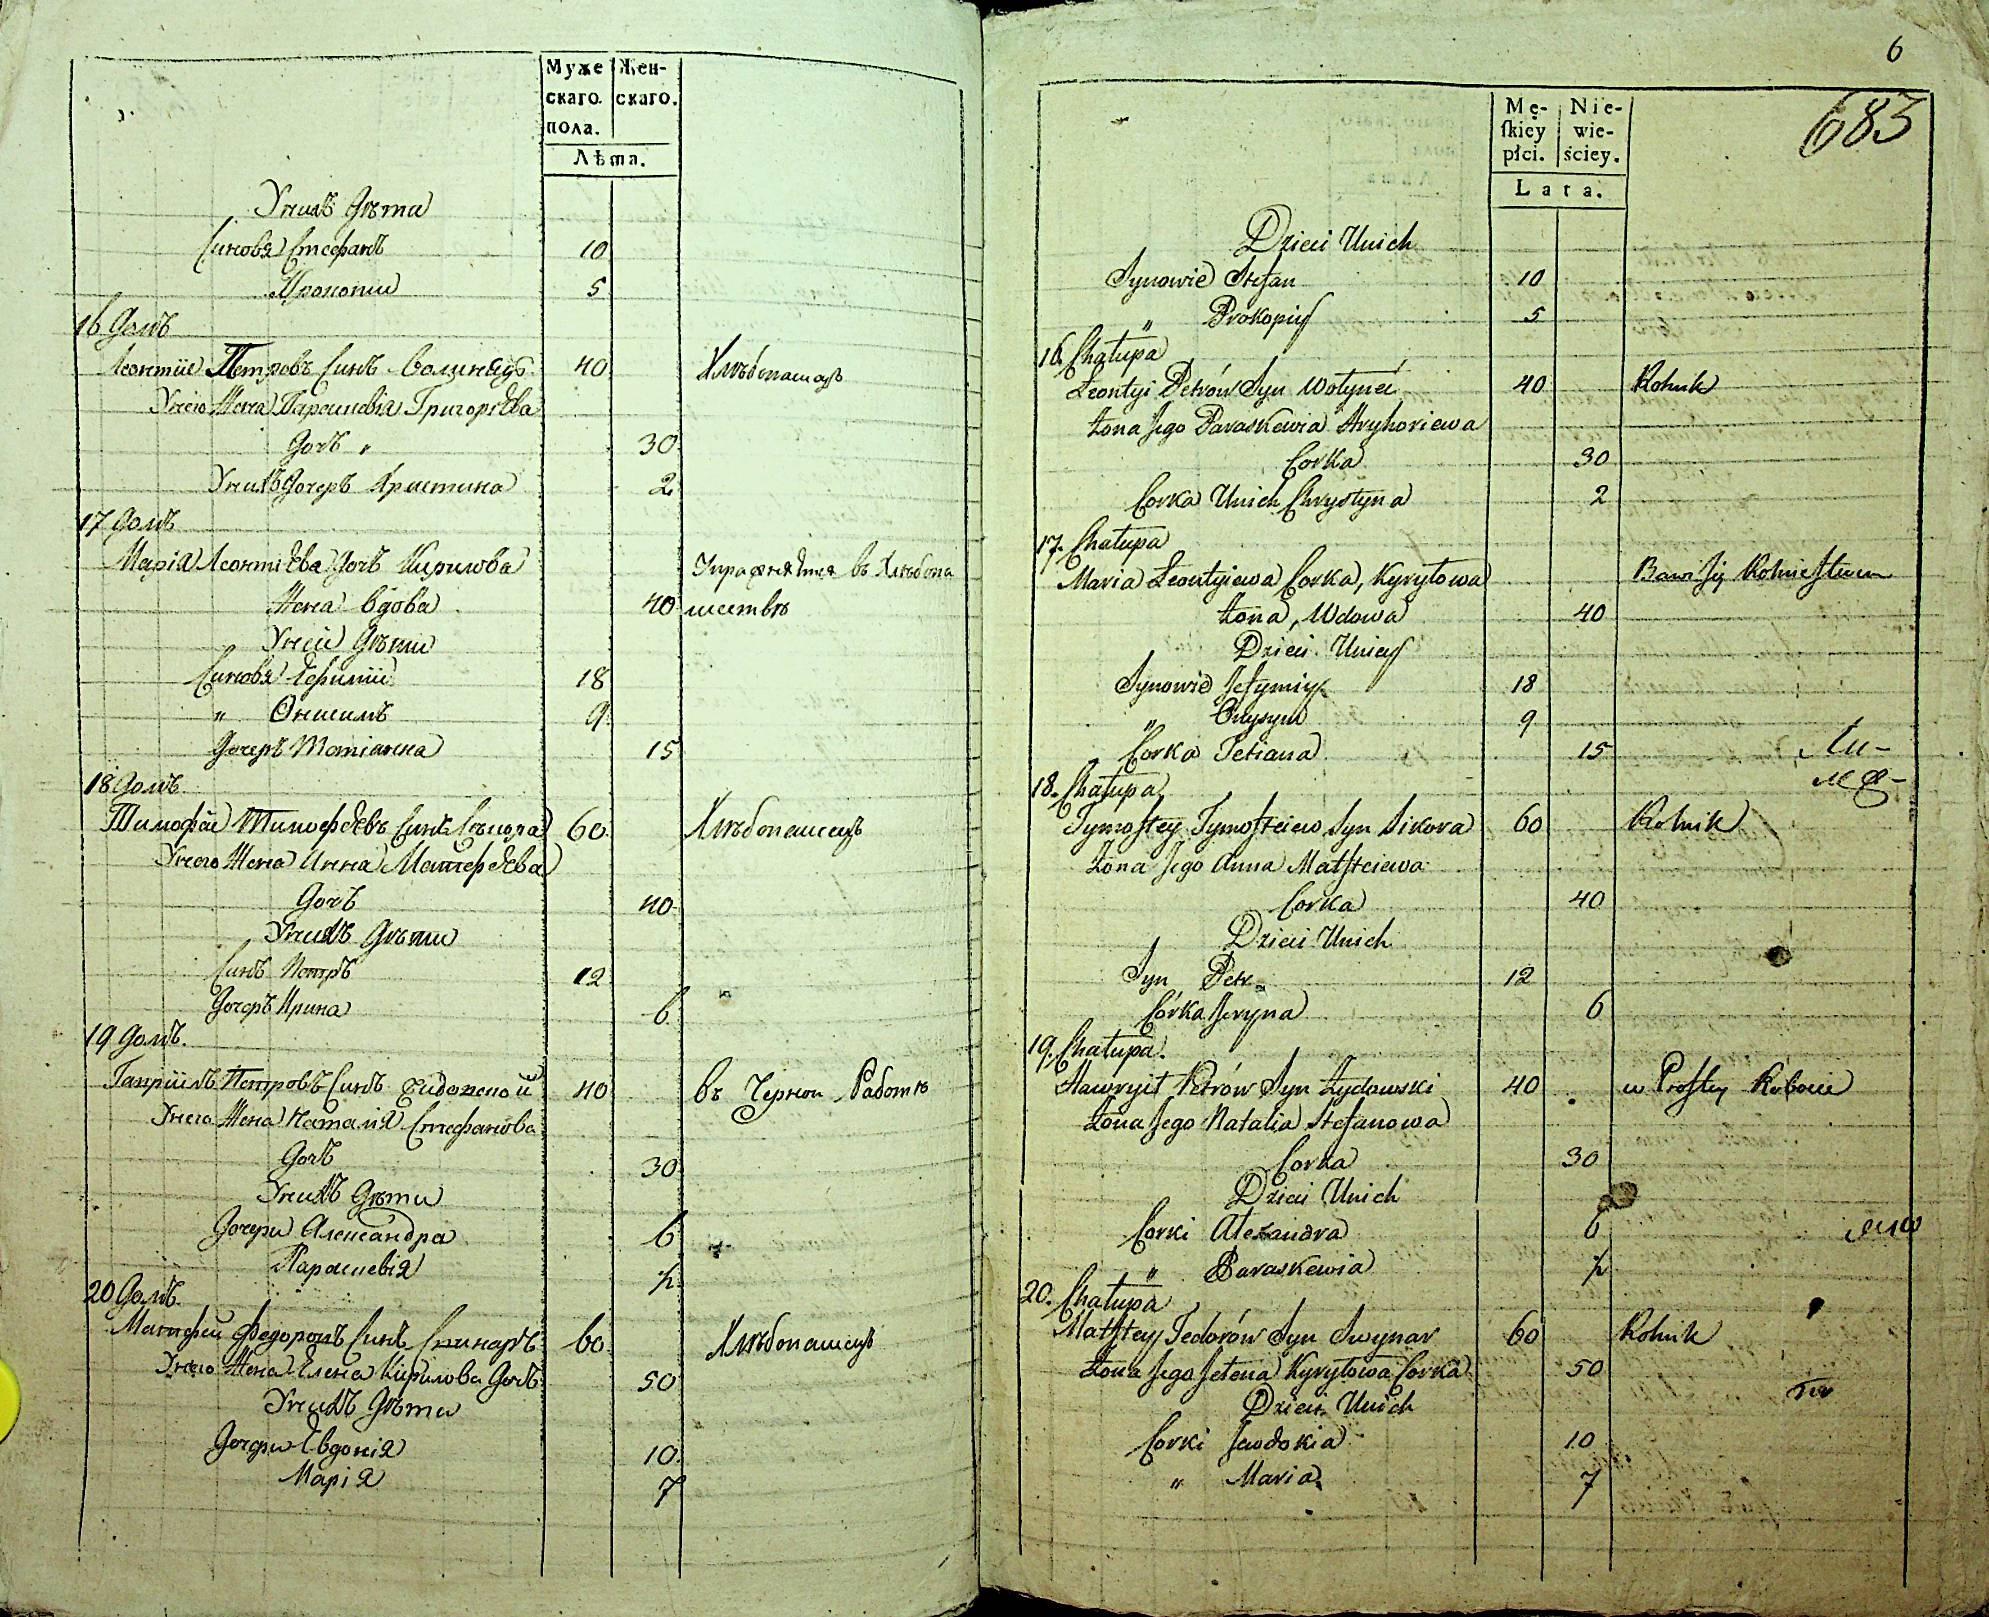 Муже Жен-
скаго. скаго.
пола.
Лѣта.
Унихъ Дѣти
Синовя Стефанъ 10
Прокопии 5
16 Домъ
Леонтие Петровъ Синъ Волинецъ 40 Хлѣбопашецъ
Унего Жена Параскевія Григоріева
Дочъ „ 30
Унихъ Дочеръ Христина 2
17 Домъ
Марія Леонтіева Дочъ Кирилова Упражняется въ Хлѣбопа
Жена вдова 40 шествѣ
Унеи Дѣти
Синовя Ефимии 18
„ Онисимъ 9
Дочеръ Татіанна 15
18 Домъ
Тимофей Тимофеевъ Синъ 60 Хлѣбопашецъ
Унего Жена Анна Матфеева
Дочъ 40
Унихъ Дѣти
Синъ Петръ 12
Дочеръ Ирина 6
19 Домъ.
Гаприилъ Петровъ Синъ 40 въ Черной Работѣ
Унего Жена Наталія Стефанова
Дочъ 30
Унихъ Дѣти
Дочери Александра 6
Параскевія ½
20 Домъ.
Матфеи Федоровъ Синъ 60 Хлѣбопашецъ
Унего Жена Елена Кирилова Дочъ 50
Унихъ Дѣти
Дочери Евдокія 10
Марія 7
6
683
Mę- Nie-
skiey wie-
płci. ściey.
Lata.
Dzieci Unich
Synowie Stefan 10
„ Prokopiy 5
16. Chałupa
Leontyi Petrów Syn Wołyneć 40 Rolnik
Żona Jego Paraskewia Hryhoriewa
Corka 30
Corka Unich Chrystyna 2
17. Chałupa
Maria Leontyiewa Corka, Kyryłowa Bawi się Rolnictwem
Żona, Wdowa 40
Dzieci Uniey
Synowie Jefymiy 18
„ Onysym 9
Corka Tetiana 15
18. Chałupa
Tymoftey Tymofteiew Syn Sikora 60 Rolnik
Żona Jego Anna Matfteiewa
Corka 40
Dzieci Unich
Syn Petr 12
Córka Jeryna 6
19. Chałupa.
Hawryił Petrów Syn Żydowski 40 w Prostey Robocie
Żona Jego Natalia Stefanowa
Corka 30
Dzieci Unich
Corki Alexandra 6
„ Paraskewia ½
20. Chałupa
Matftey Fedorów Syn Swynar 60 Rolnik
Żona Jego Jełena Kyryłowa Corka 50
Dzieci Unich
Corki Jewdokia 10
„ Maria 7